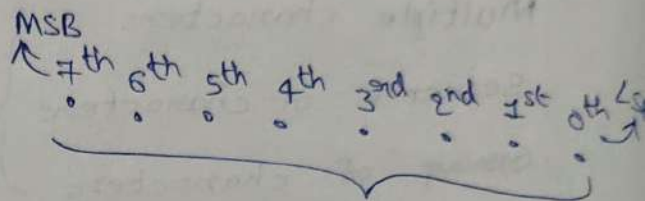 MSB
7th 6th 5th 4th 3rd 2nd 1st 0th